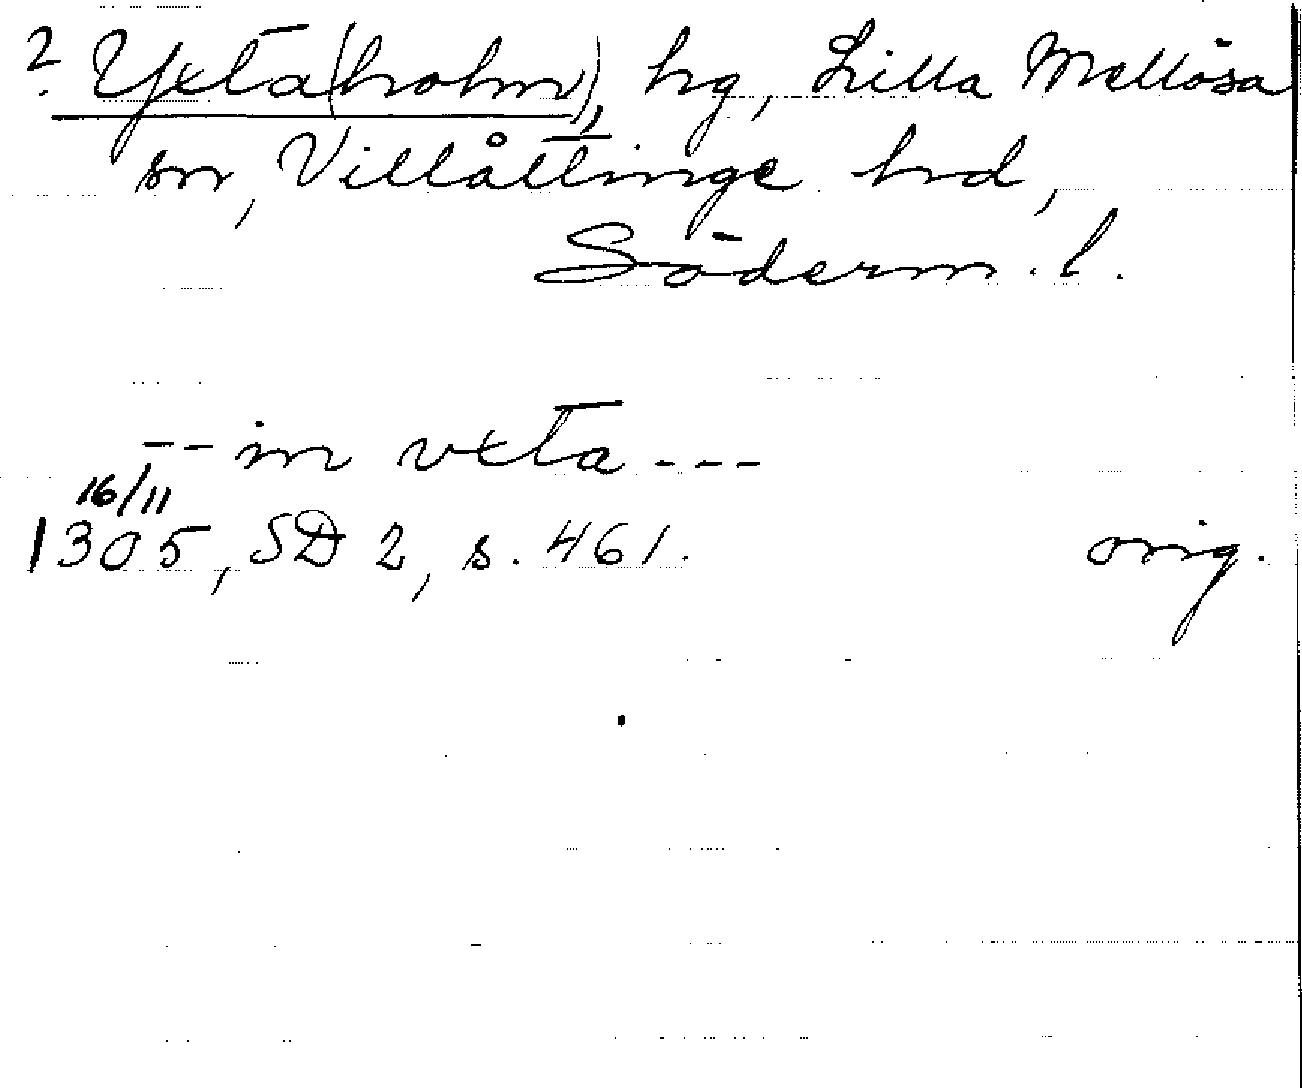 ? Yxta(holm), hg, Lilla Mellösa
sn, Villåttinge hd,
Söderm. l.
-- in vxta ---
16/11
1305, SD 2, s. 461. orig.